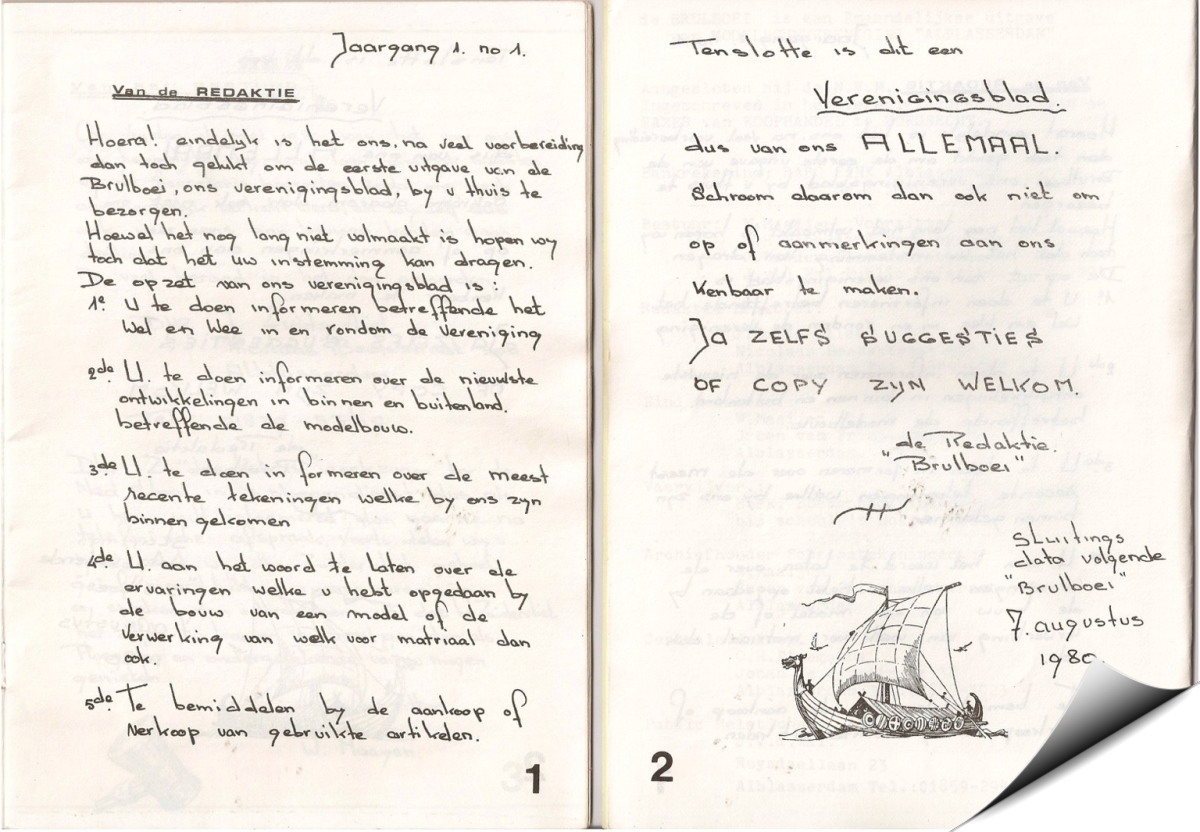 Jaargang 1. no 1.
Van de REDAKTIE
Hoera! eindelijk is het ons, na veel voorbereiding
dan toch gelukt om de eerste uitgave van de
Brulboei, ons verenigingsblad, by u thuis te
bezorgen.
Hoewel het nog lang niet, volmaakt is hopen wy
toch dat het uw instemming kan dragen.
De opzet van ons verenigingsblad is :
1e. U te doen informeren betreffende het
Wel en Wee in en rondom de Vereniging
2de U. te doen informeren over de nieuwste
ontwikkelingen in binnen en buitenland.
betreffende de modelbouw.
3de U. te doen informeren over de meest
recente tekeningen welke by ons zyn
binnen gekomen
4de U. aan het woord te laten over de
ervaringen welke u hebt opgedaan by
de bouw van een model of de
verwerking van welk voor matriaal dan
ook.
5de Te bemiddelen by de aankoop of
Verkoop van gebruikte artikelen.
1
Tenslotte is dit een
Verenigingsblad.
dus van ons ALLEMAAL.
Schroom daarom dan ook niet om
op of aanmerkingen aan ons
Kenbaar te maken.
Ja ZELFS SUGGESTIES
OF COPY ZYN WELKOM.
de Redaktie.
"Brulboei"
Sluitings
data volgende
"Brulboei"
7 augustus
1980.
2